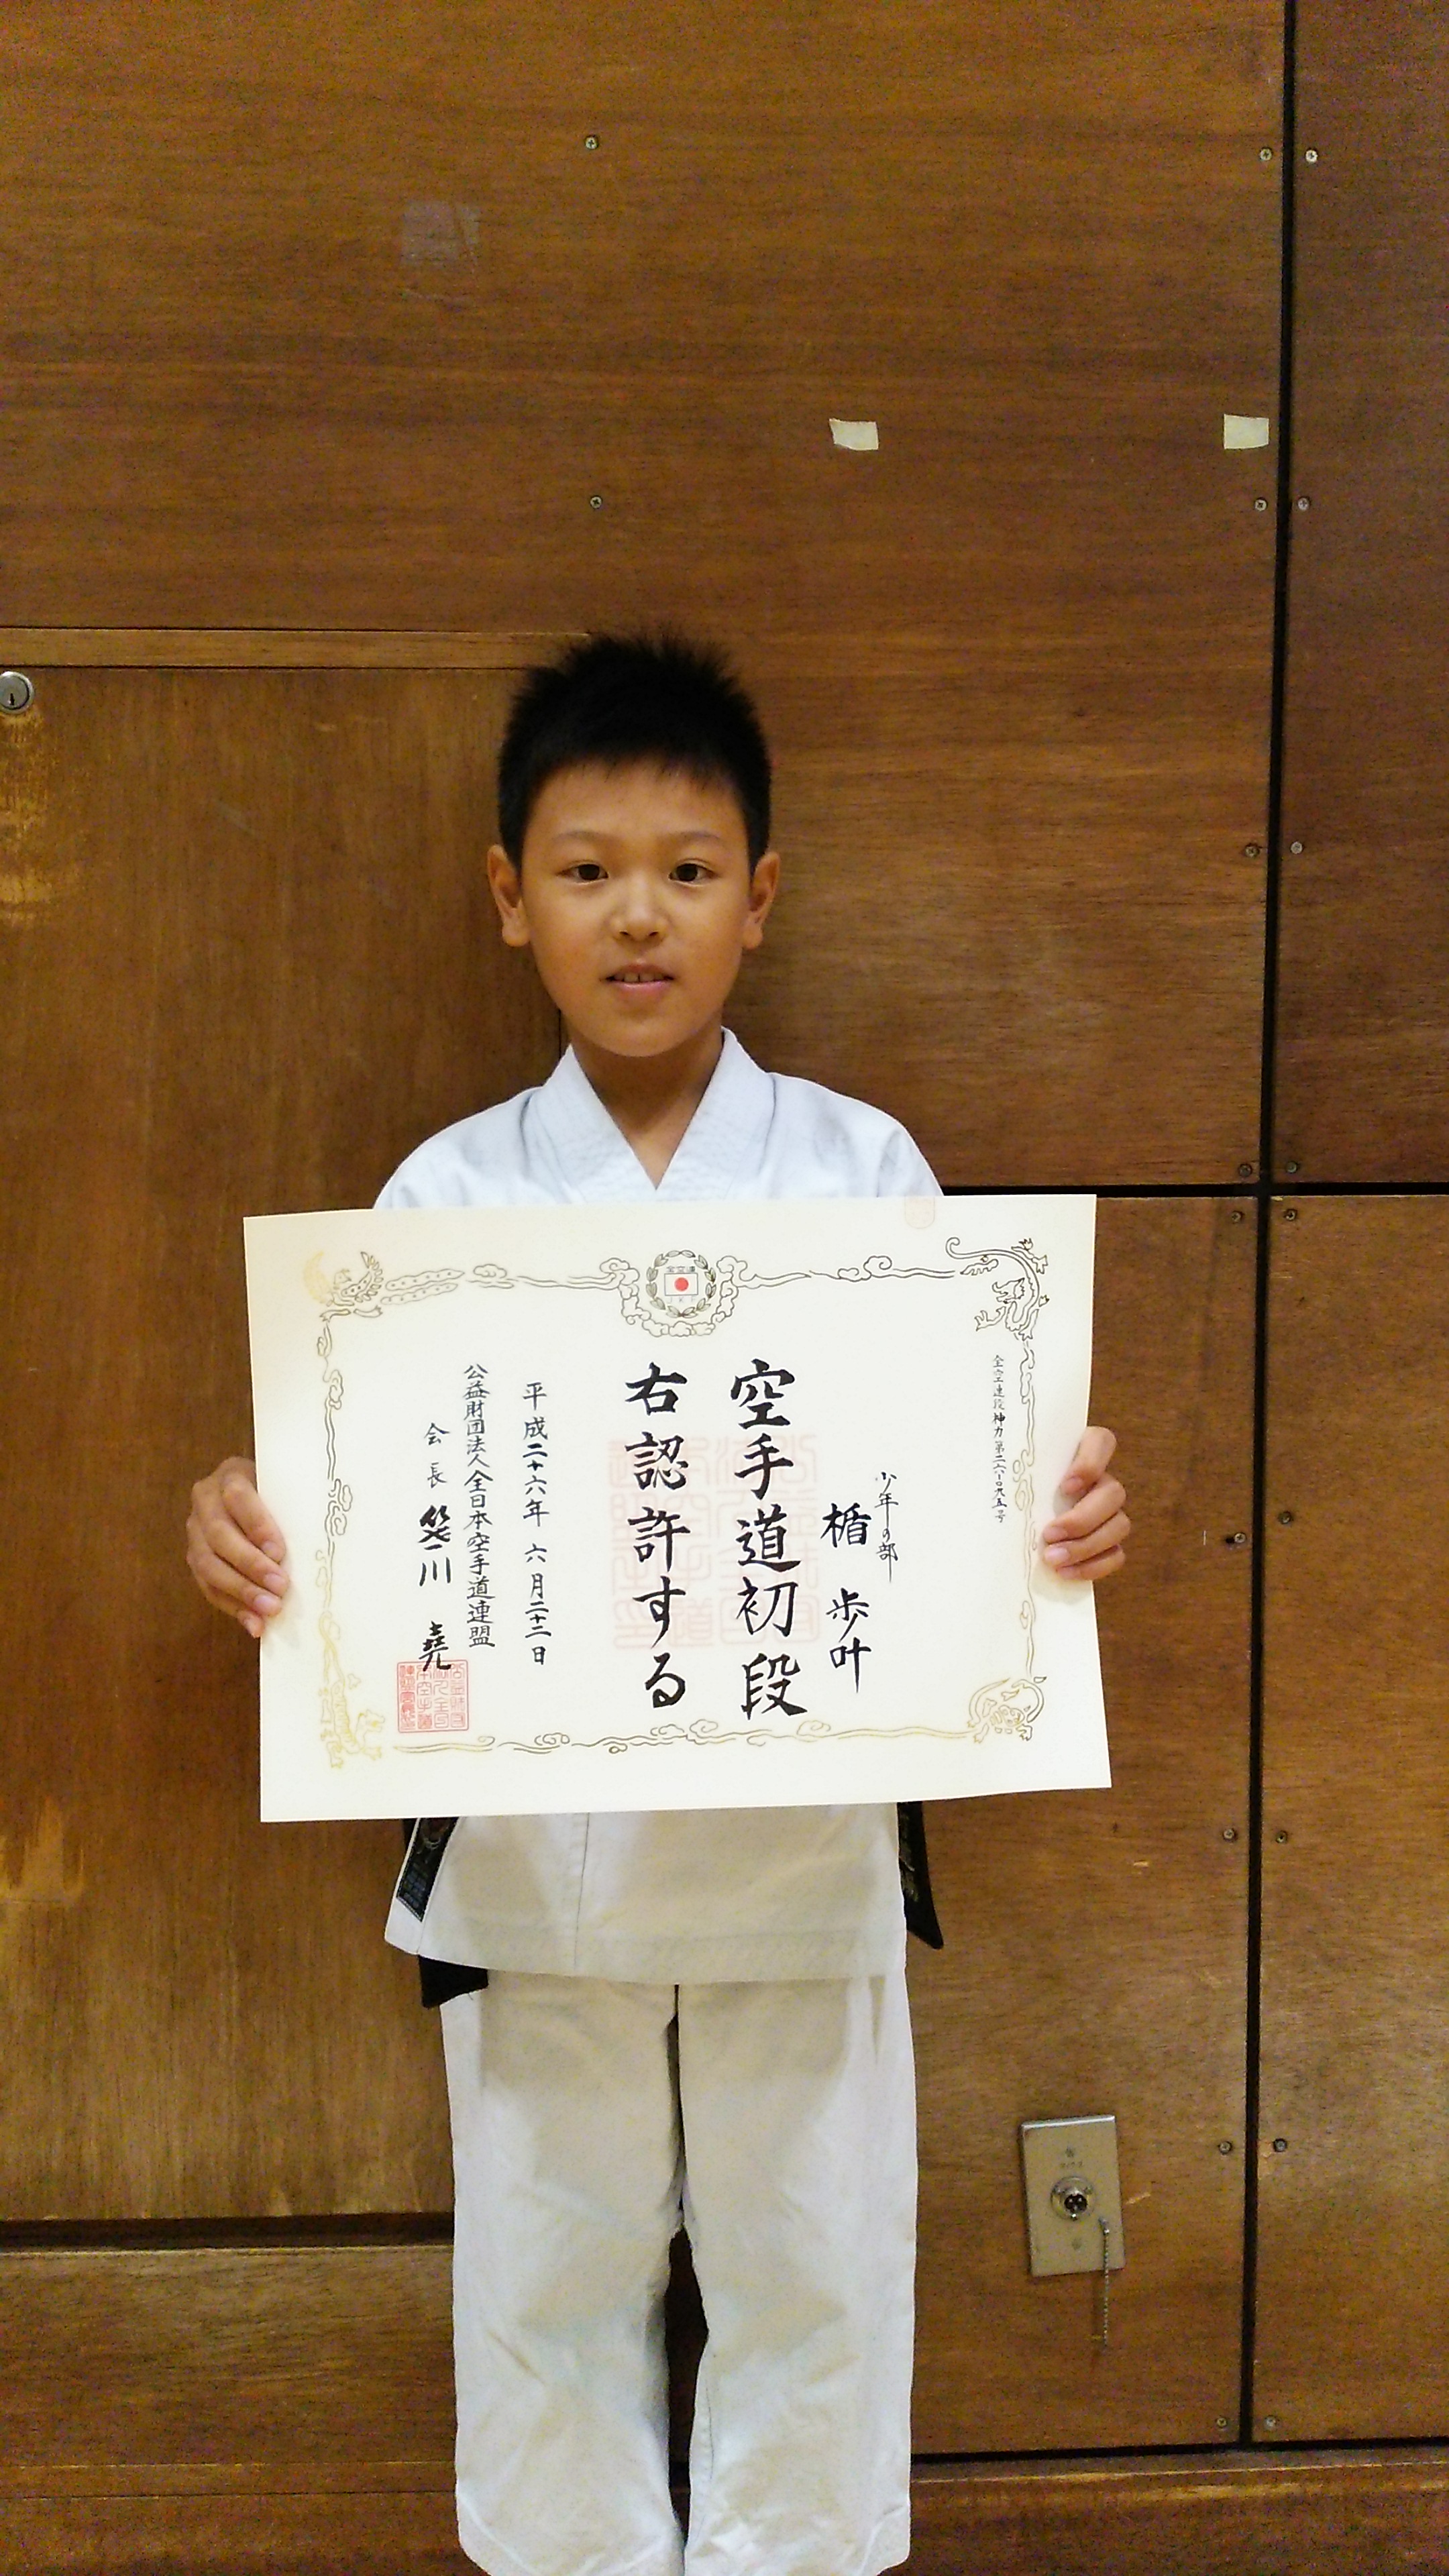 全空連
全空連段神力第二六-〇九五号
少年の部
楯 歩叶
空手道初段
右認許する
平成二十六年六月二十二日
公益財団法人全日本空手道連盟
会長 笹川 堯